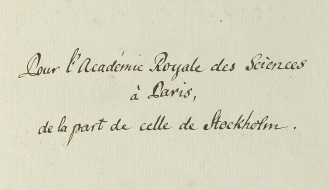 Pour l'Académie Royale des Sciences
à Paris,
de la part de celle de Stockholm.